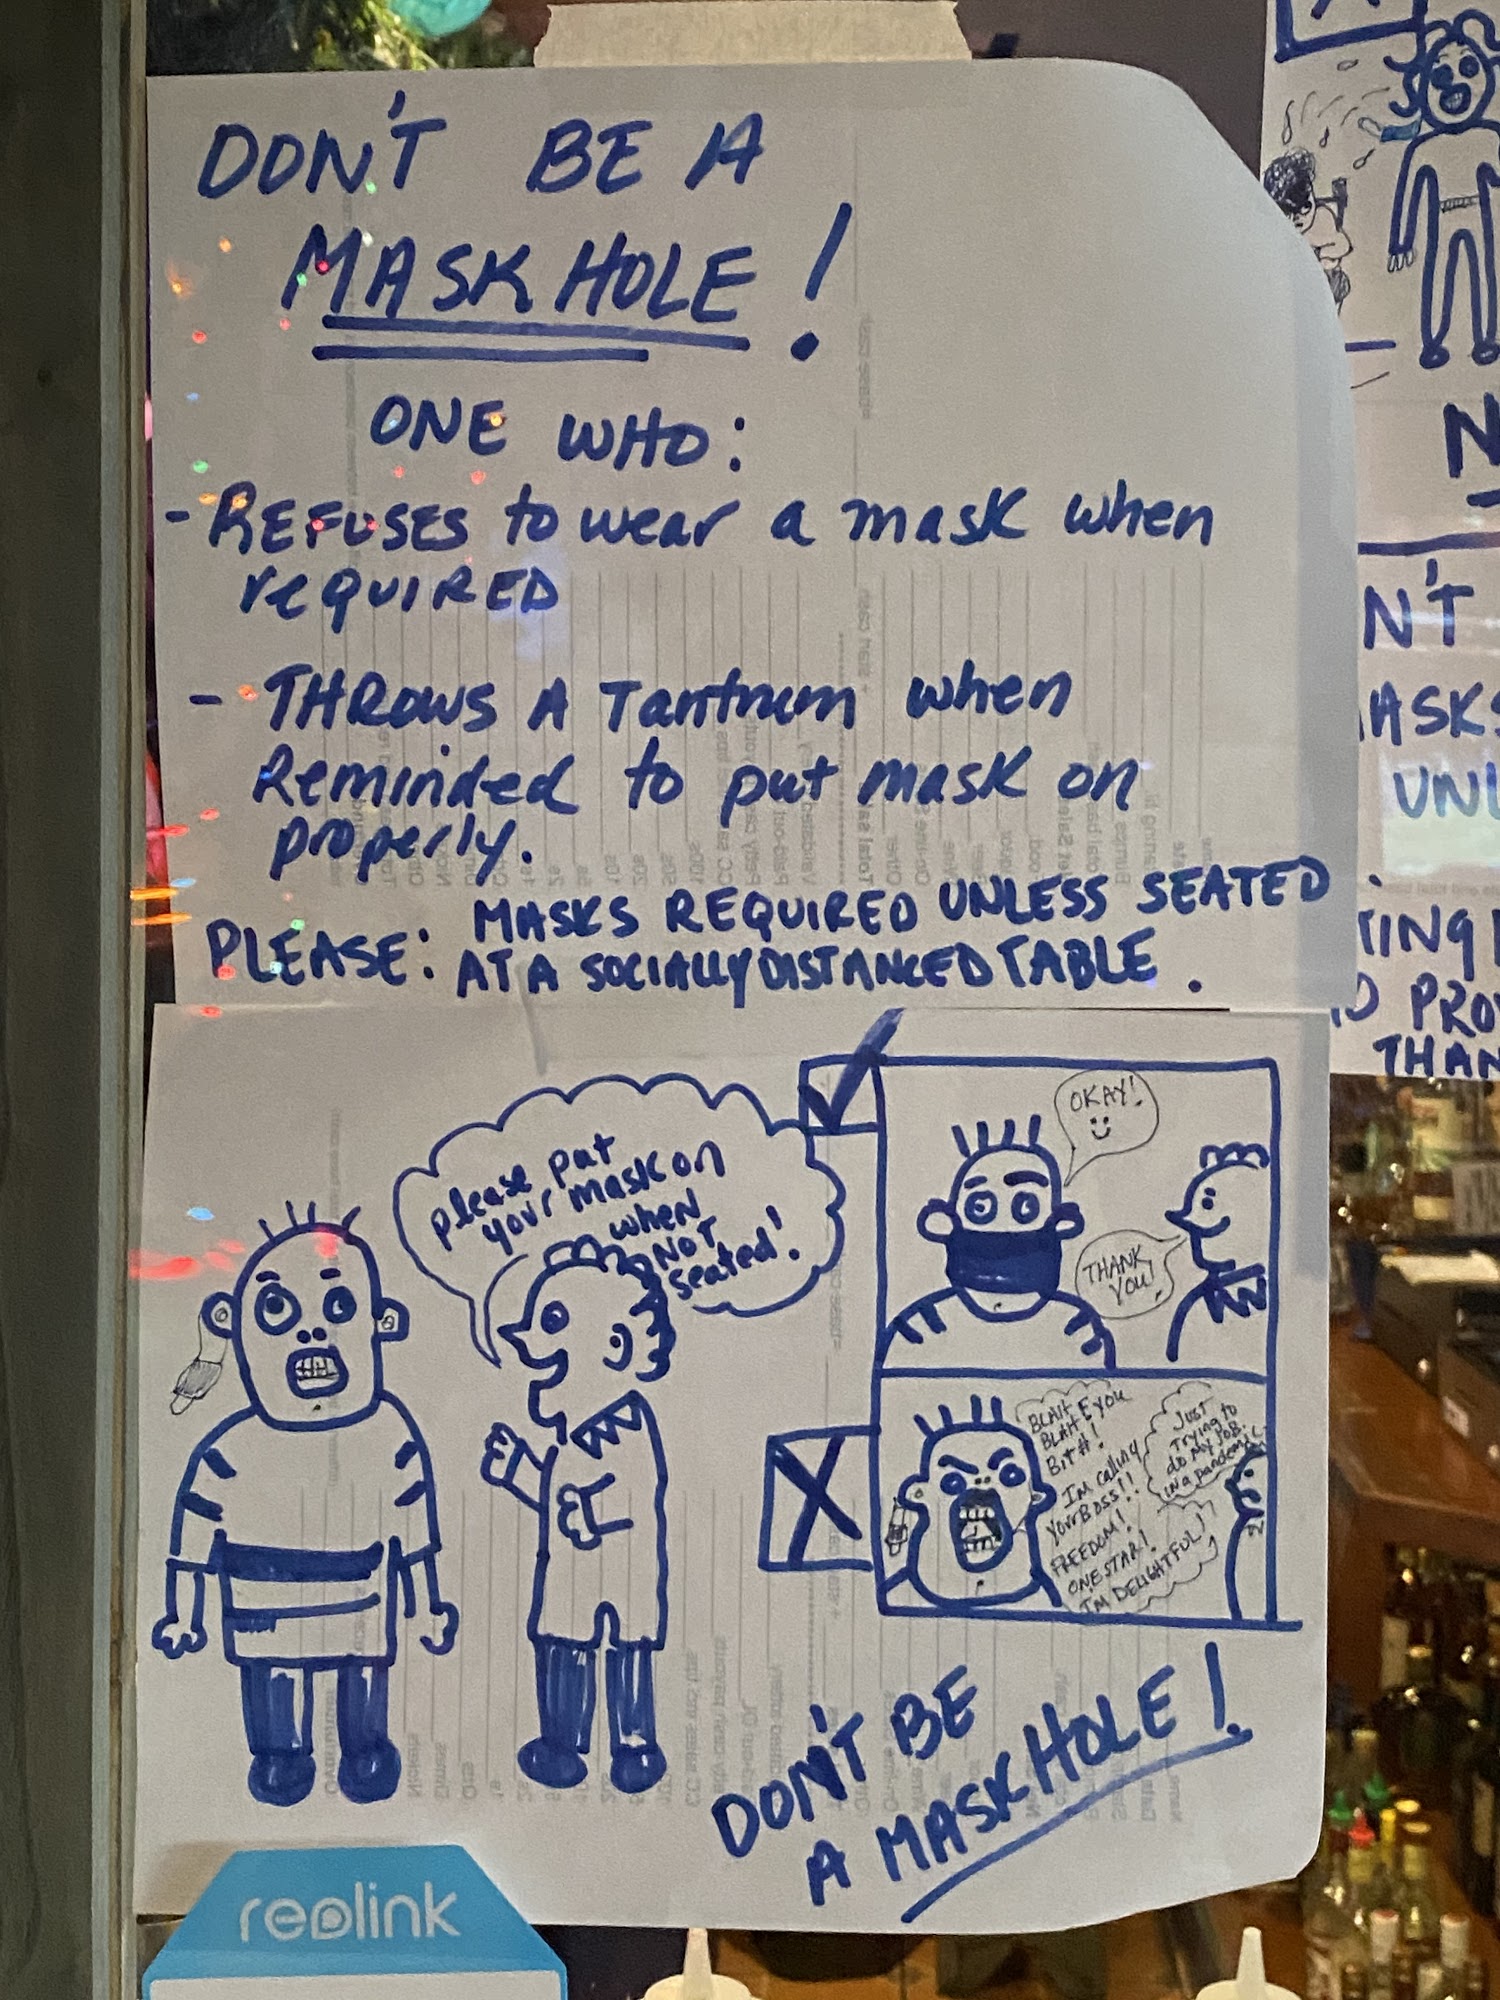 DON'T BE A
MASKHOLE!
ONE WHO:
- REFUSES to wear a mask when
reQUIRED
- THROWS A Tantrum when
Reminded to put mask on
properly.
PLEASE: MASKS REQUIRED UNLESS SEATED
AT A SOCIALLY DISTANCED TABLE.
please put
your mask on
when
NOT
seated!
OKAY!
THANK
YOU!
BLAH
BLAH E YOU
BIT#!
I'm calling
your BOSS!!
FREEDOM!
ONE STAR!
I'M DELIGHTFUL!
JUST
trying to
do my JOB
in a pandemic
DON'T BE
A MASKHOLE!
reolink
N
N'T
MASKS
UNL
TING
PRO
THAN